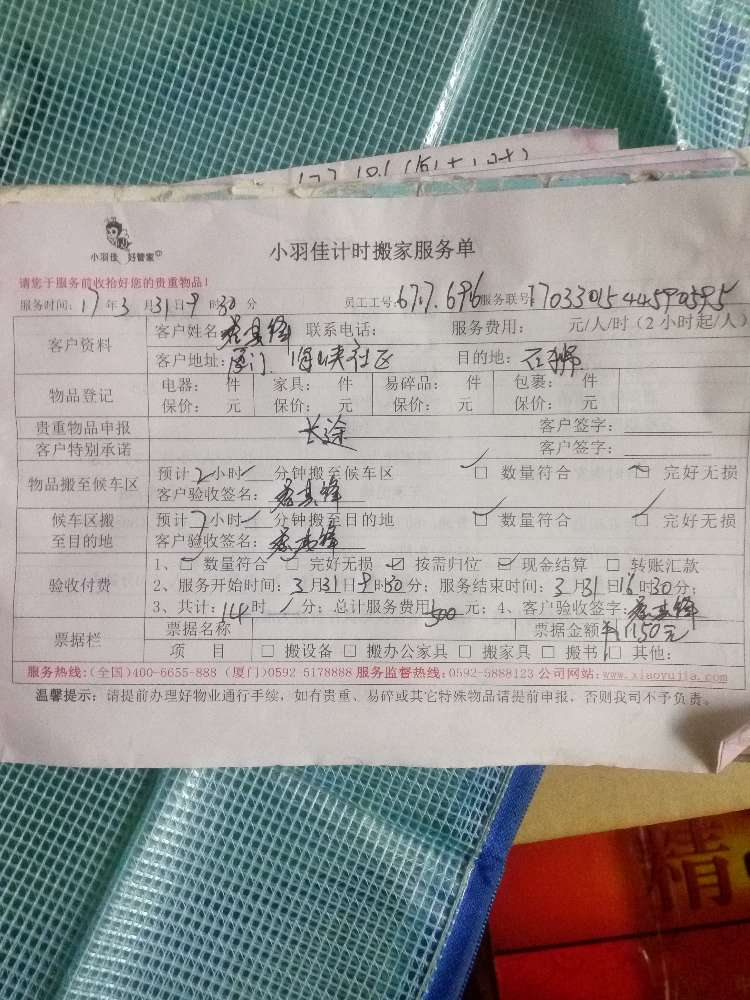 小羽佳 好管家
小羽佳计时搬家服务单
请您于服务前收拾好您的贵重物品！
服务时间：17年3月31日9时30分 员工工号：677.696 服务联号：1703301544590595
客户资料 客户姓名： 联系电话： 服务费用： 元/人/时（2小时起/人）
客户地址：厦门 海峡社区 目的地：石狮
物品登记 电器： 件 家具： 件 易碎品： 件 包裹： 件
保价： 元 保价： 元 保价： 元 保价： 元
贵重物品申报 长途 客户签字：
客户特别承诺 客户签字：
物品搬至候车区 预计2小时 分钟搬至候车区 □ 数量符合 □ 完好无损
客户验收签名：
候车区搬至目的地 预计 小时 分钟搬至目的地 □ 数量符合 □ 完好无损
客户验收签名：
验收付费 1、□ 数量符合 □ 完好无损 ☑ 按需归位 ☑ 现金结算 □ 转账汇款
2、服务开始时间：3月31日9时30分；服务结束时间：3月31日16时30分；
3、共计：14时 分；总计服务费用 500 元；4、客户验收签字：
票据栏 票据名称 票据金额 1150元
项 目 □ 搬设备 □ 搬办公家具 □ 搬家具 □ 搬书 □ 其他：
服务热线：(全国)400-6655-888 (厦门)0592 5178888 服务监督热线：0592-5888123 公司网站：www.xiaoyujia.com
温馨提示：请提前办理好物业通行手续，如有贵重、易碎或其它特殊物品请提前申报，否则我司不予负责。
精